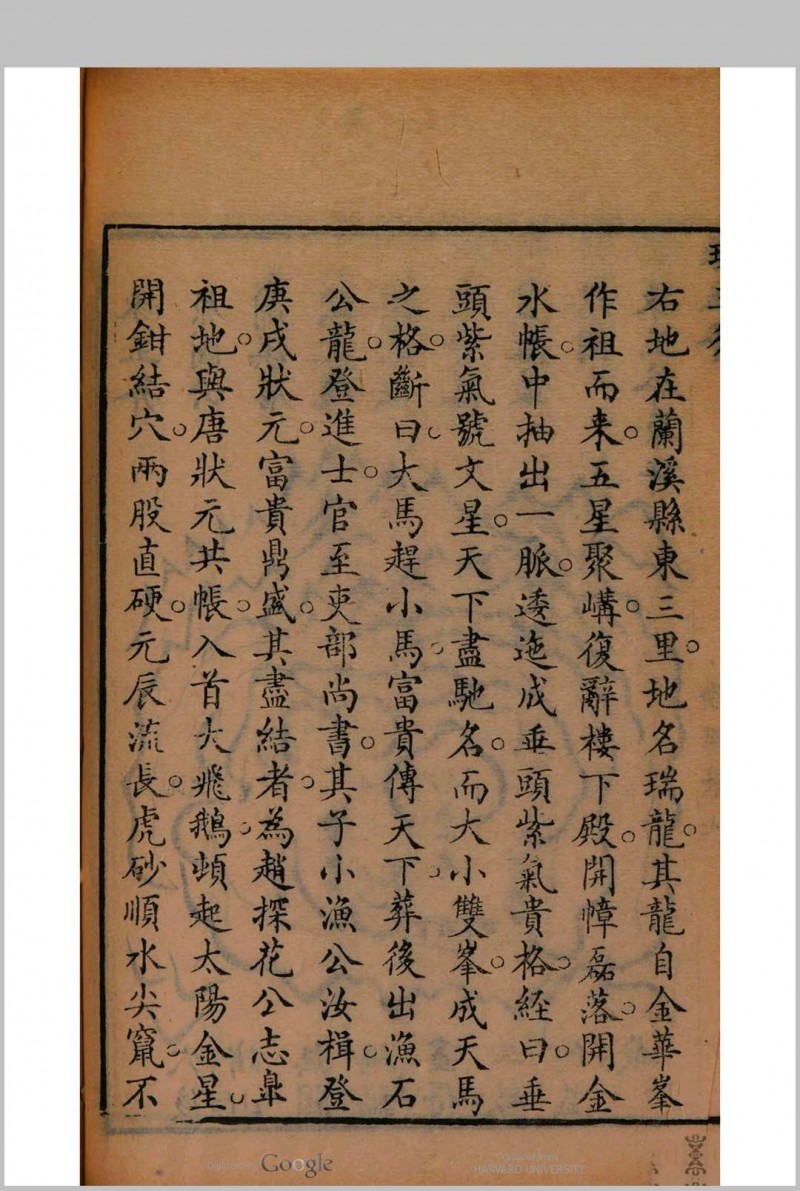 右地在蘭溪縣東三里。地名瑞龍。其龍自金華峯
作祖而来。五星聚講。復辭樓下殿。開幛磊落。開金
水帳。中抽出一脈。逶迤成垂頭紫氣貴格。経曰。垂
頭紫氣號文星。天下盡馳名。而大小雙峯。成天馬
之格。斷曰。大馬趕小馬。富貴傳天下。葬後出漁石
公龍。登進士。官至吏部尚書。其子小漁公汝楫。登
庚戌狀元。富貴鼎盛。其盡結者。為趙探花公志臯
祖地。與唐狀元共帳。入首大飛鵝。頓起太陽金星。
開鉗結穴。兩股直硬。元辰流長。虎砂順水尖竄。不
Google
Original from
HARVARD UNIVERSITY